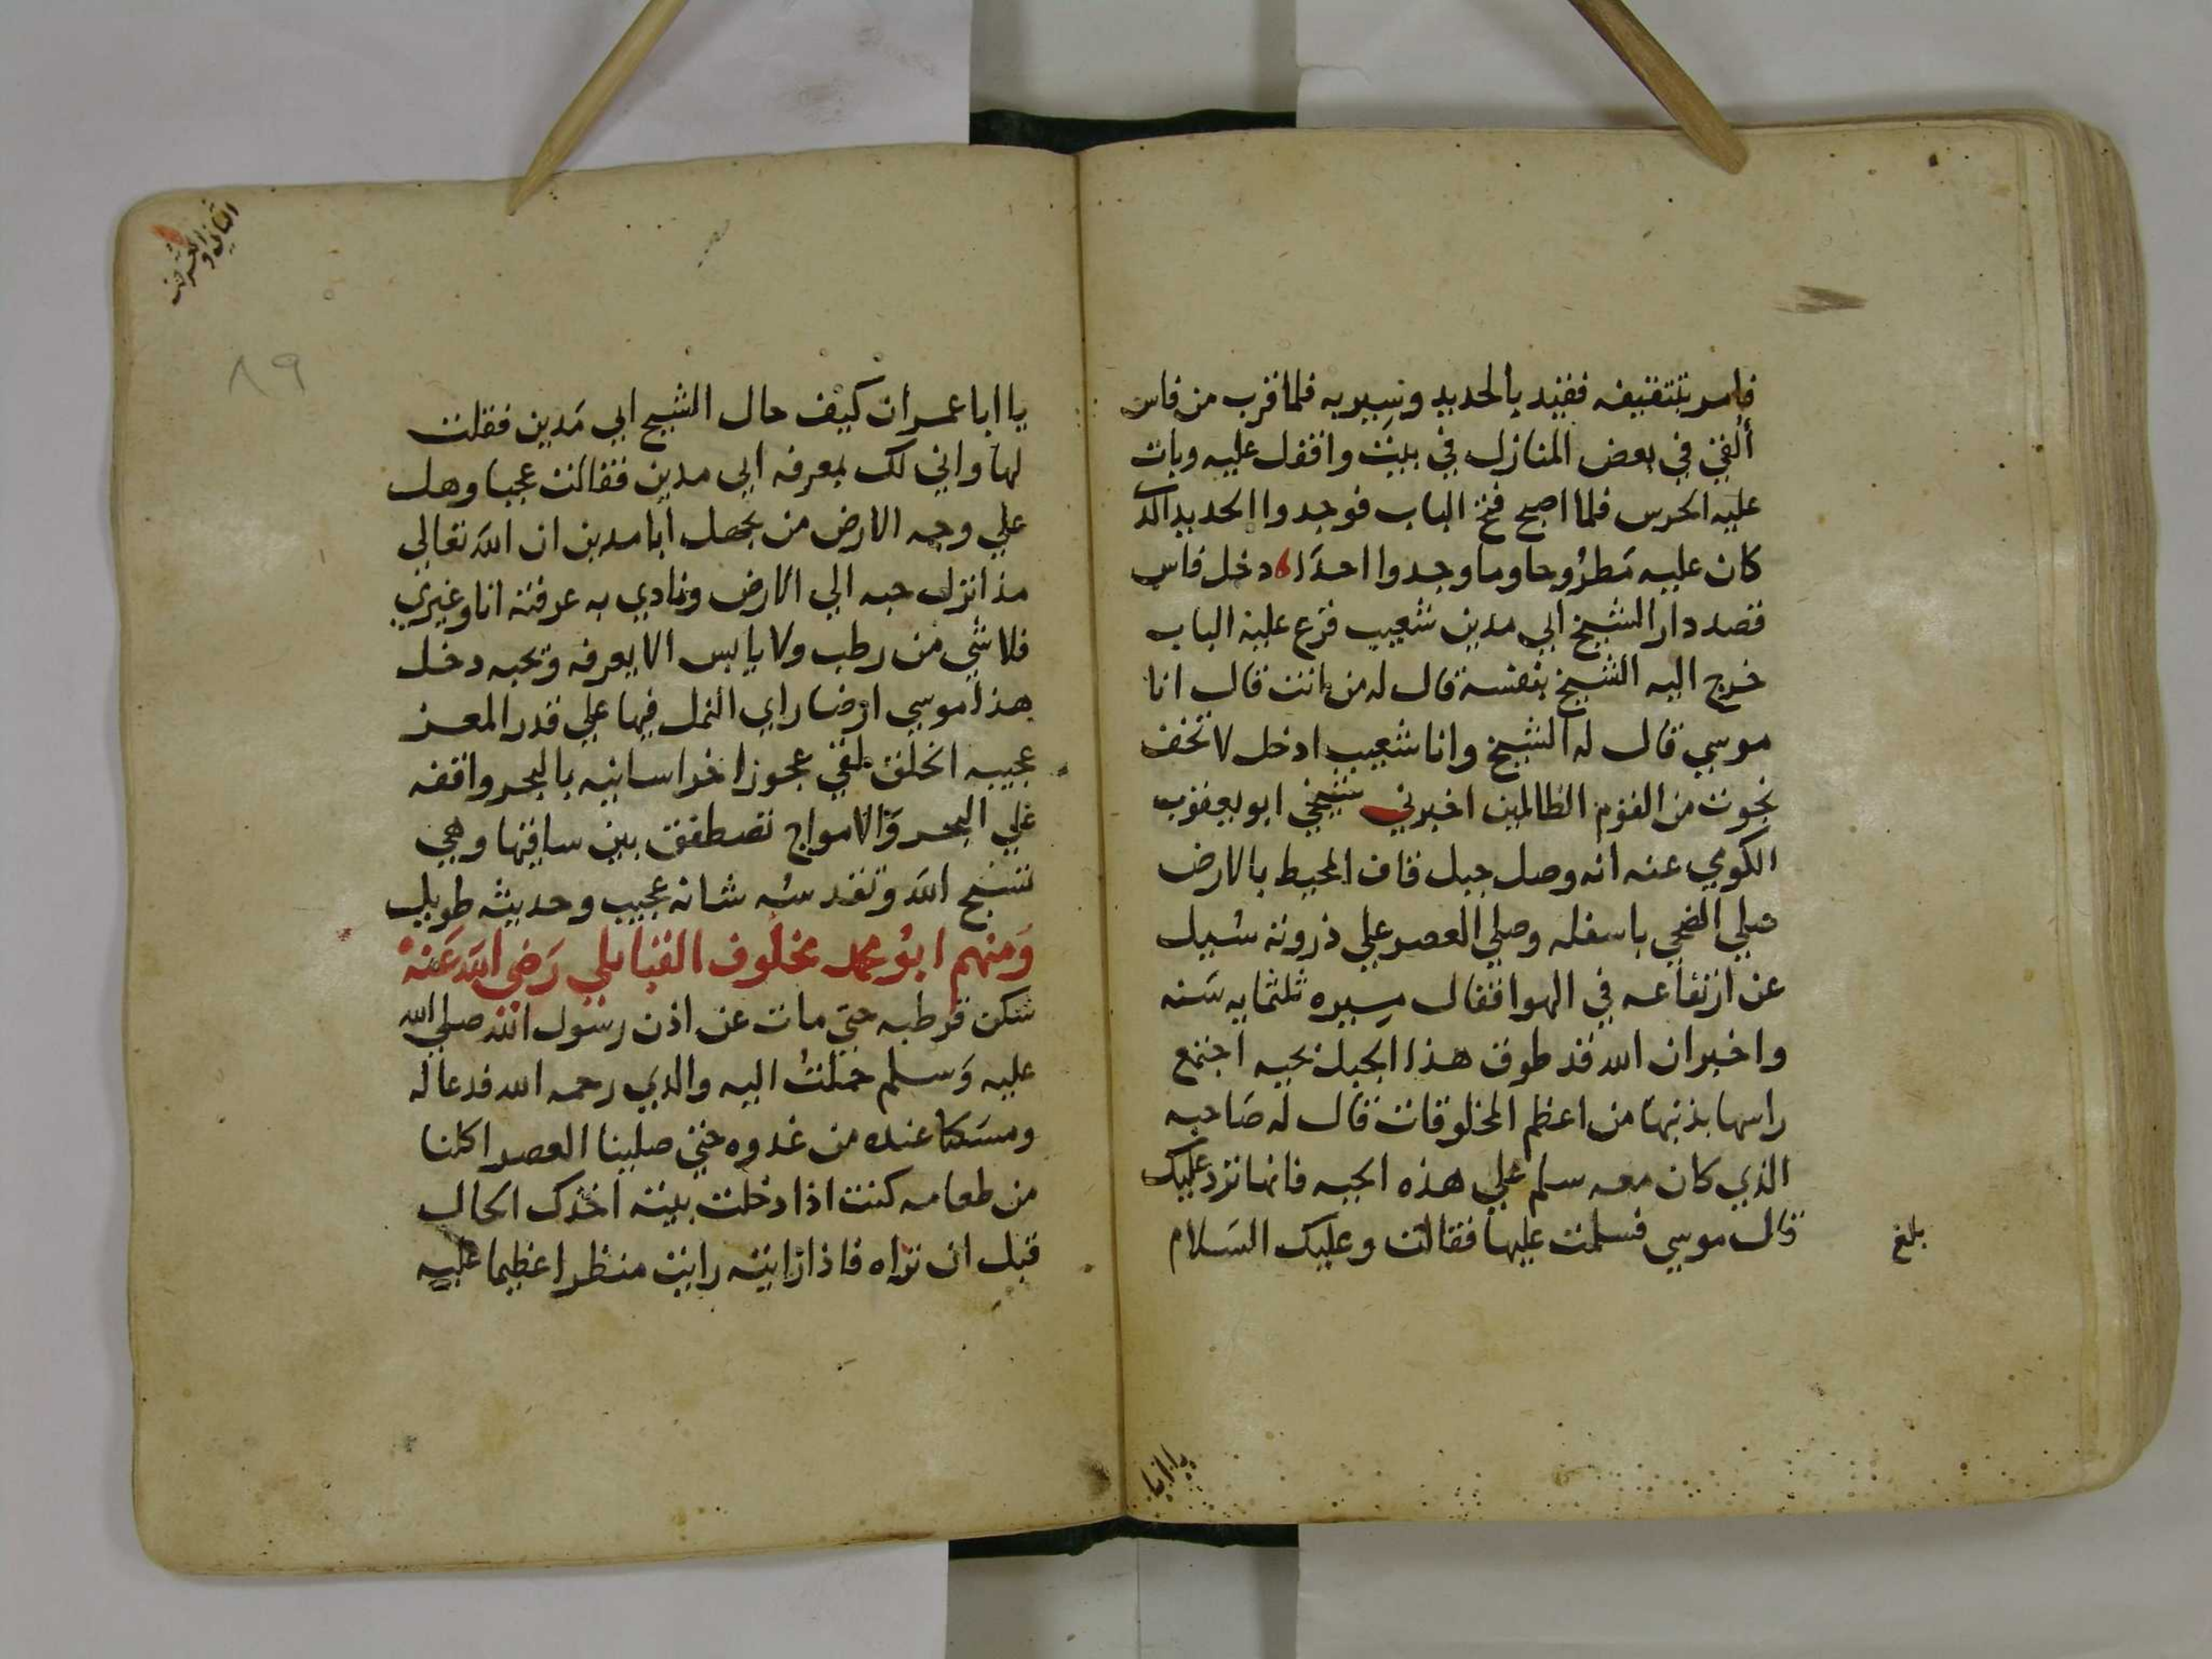 فامر بتثقيفه فقيد بالحديد وسير به فلما قرب من فاس
ألقي في بعض المنازل في بيت واقفل عليه وبات
عليه الحرس فلما اصبح فتح الباب فوجدوا الحديد الذي
كان عليه مَطرُوحا وما وجدوا احدَا دخل فاس
فقصد دار الشيخ ابي مدين شعيب قرع عليه الباب
خرج اليه الشيخ بنفسه قال له من انت قال انا
موسي قال له الشيخ وانا شعيب ادخل لا تخف
نجوت من القوم الظالمين اخبرني شيخي ابو يعقوب
الكومي عنه انه وصل جبل قاف المحيط بالارض
صلي الضحي باسفله وصلي العصر علي ذروته سُيل
عن ارتفاعه في الهوا فقال مسيره ثلثمايه سَنه
واخبر ان الله قد طوق هذا الجبل بحيه اجتمع
راسها بذنبها من اعظم المخلوقات قال له صَاحبه
الذي كان معه سلم علي هذه الحيه فانها ترد عليك
قال موسي فسلمت عليها فقالت وعليك السَلام
بلغ
يا ابا
الثاني والعشرين
٨٩
يا ابا عمران كيف حال الشيخ ابي مَدين فقلت
لها واني لك بمعرفه ابي مدين فقالت عجبا وهل
علي وجه الارض من يجهل ابا مدين ان الله تعالي
مذ انزل حبه الي الارض ونادي به عرفته انا وغيري
فلا شي من رطب ولا يابس الا يعرفه ويحبه دخل
هذا موسي ارضا راي النمل فيها علي قدر المعز
عجيبه الخلق لقي عجوزا خراسانيه بالبحر واقفه
علي البحر وَالامواج تصطفق بين ساقيها وهي
تسبح الله وتقدسُه شانه عجيب وحديثه طويل
وَمنهم ابوُ محمد مخلوف القبايلي رَضي الله عَنهُ
سَكن قرطبه حتي مات عن اذن رسول الله صلي الله
عليه وَسلم حَملتُ اليه والدي رحمه الله فدعا له
ومسَكنا عنده من غدوه حتي صلينا العصر اكلنا
من طعامه كنت اذا دخلت بيته اخذك الحال
قبل ان تراه فاذا رَايته رايت منظرا عظيما عليه